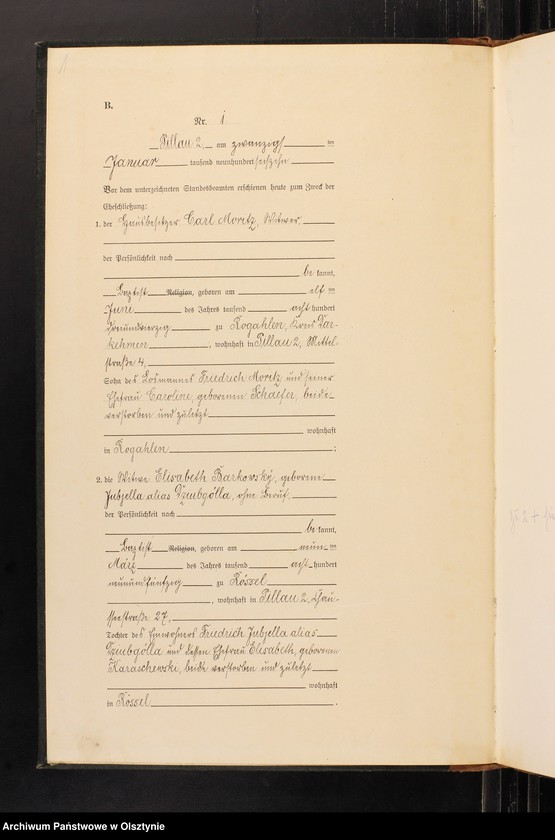 B.
Nr. 1
Pillau 2, am zwanzigsten
Januar tausend neunhundert sechzehn
Vor dem unterzeichneten Standesbeamten erschienen heute zum Zweck der
Eheschließung:
1. der Hausbesitzer Carl Moritz, Witwer
der Persönlichkeit nach
be kannt,
Baptist Religion, geboren am elf ten
Juni des Jahres tausend acht hundert
dreiundvierzig zu Rogahlen, Kreis Dar-
kehmen, wohnhaft in Pillau 2, Mittel-
straße 4,
Sohn des Losmannes Friedrich Moritz und seiner
Ehefrau Caroline, geborenen Schaefer, beide
verstorben und zuletzt
wohnhaft
in Rogahlen;
2. die Witwe Elisabeth Barkowsky, geborene
Jubzella alias, ohne Beruf
der Persönlichkeit nach
be kannt,
Baptist Religion, geboren am neun ten
März des Jahres tausend acht hundert
neunundfünfzig zu Rössel
, wohnhaft in Pillau 2, Chau-
sseestraße 27,
Tochter des Einwohners Friedrich Jubzella alias
und dessen Ehefrau Elisabeth, geborenen
Karaschewski, beide verstorben und zuletzt
wohnhaft
in Rössel.
Archiwum Państwowe w Olsztynie